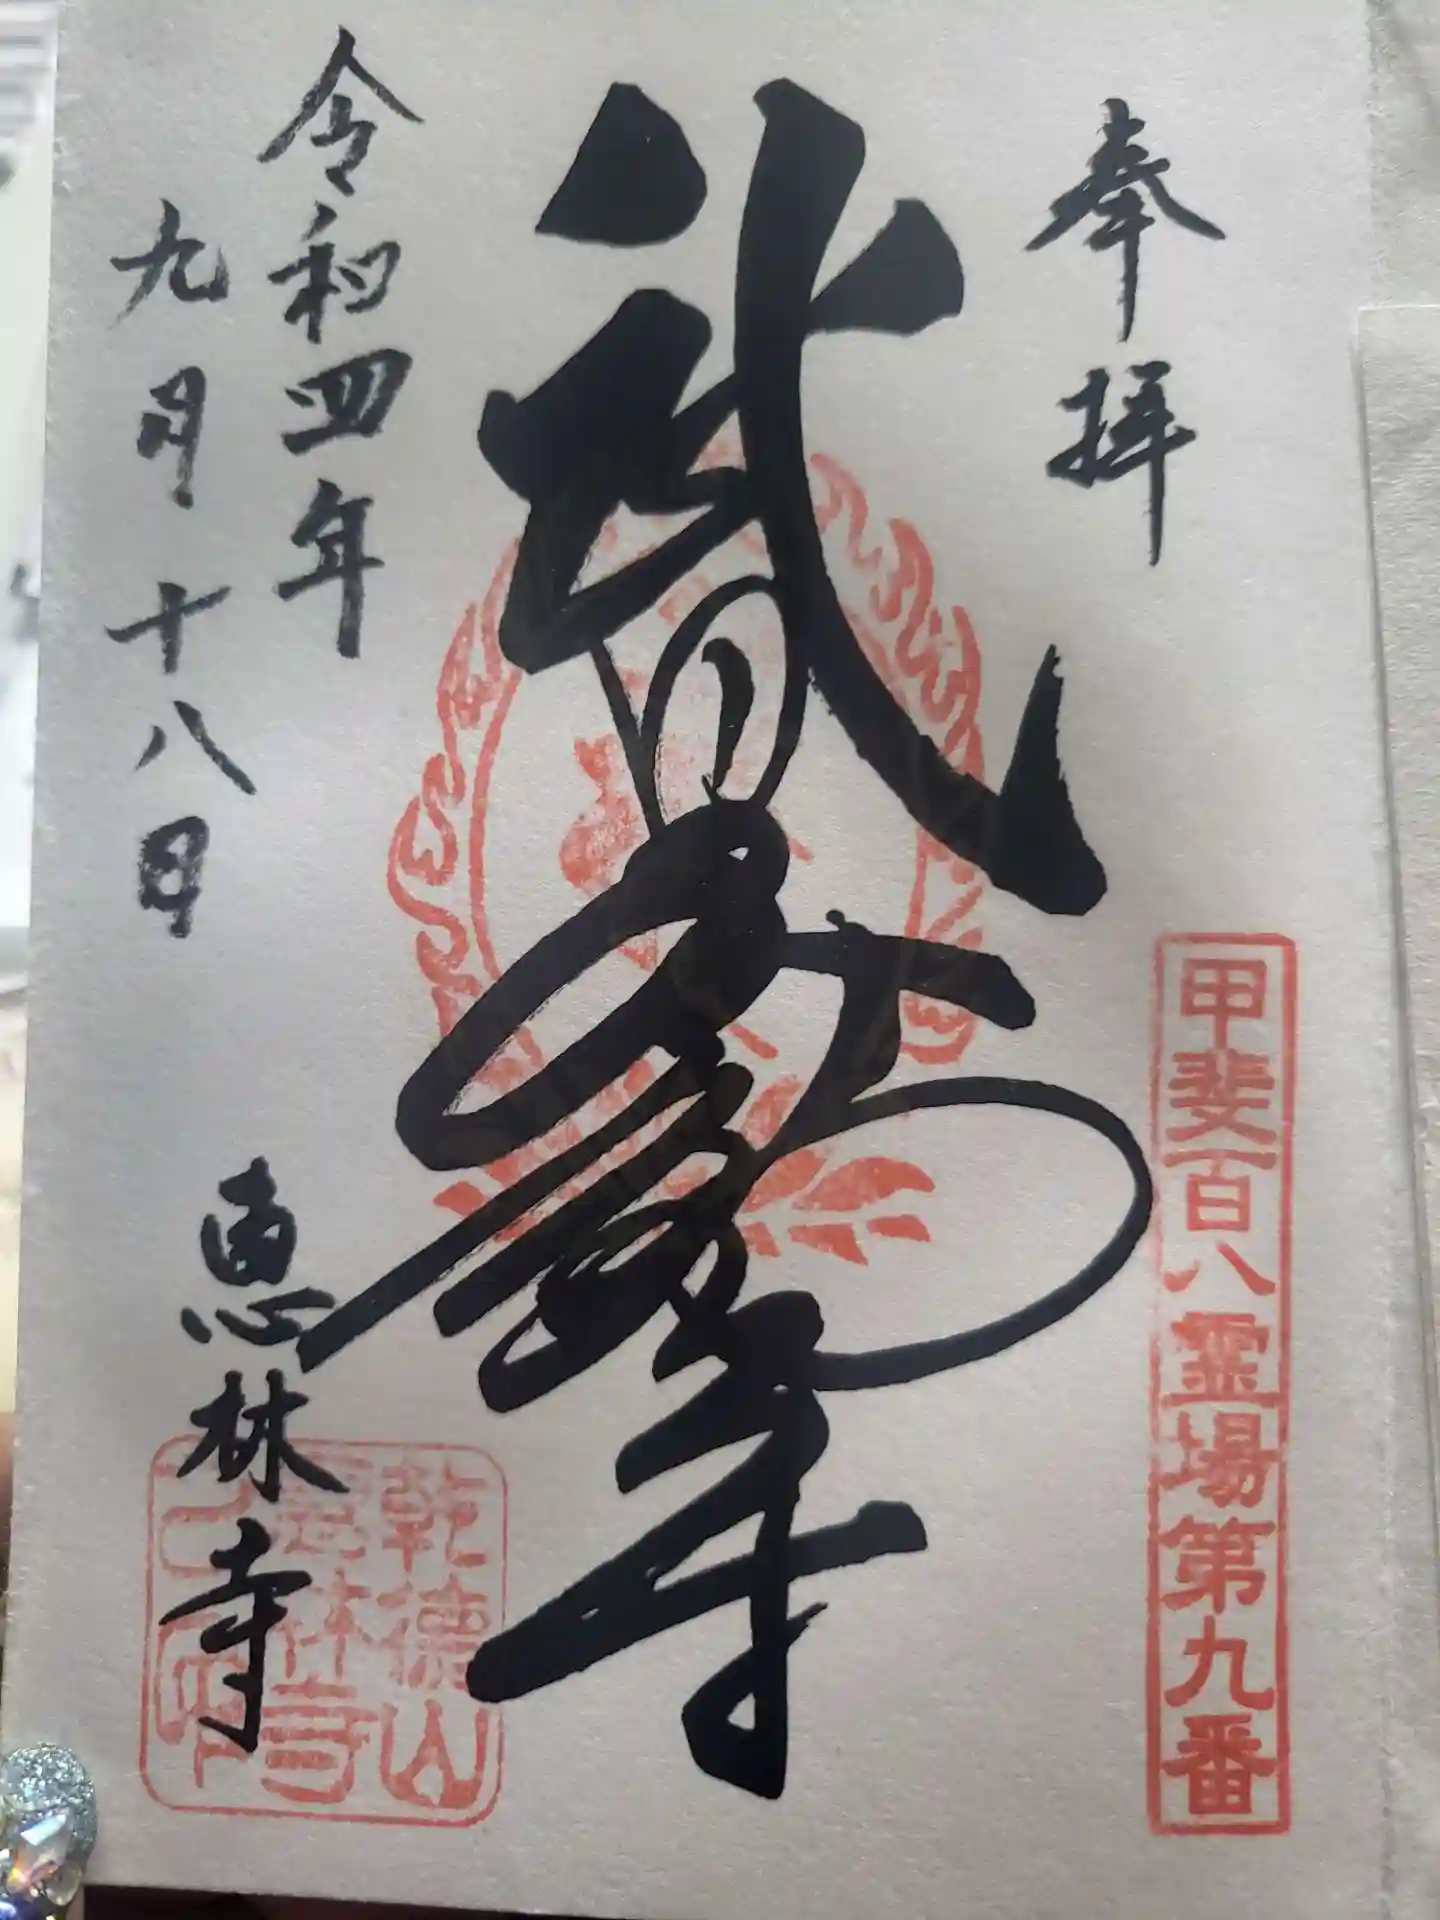 奉拝
甲斐百八霊場第九番
武田不動尊
令和四年
九月十八日
恵林寺
乾徳山